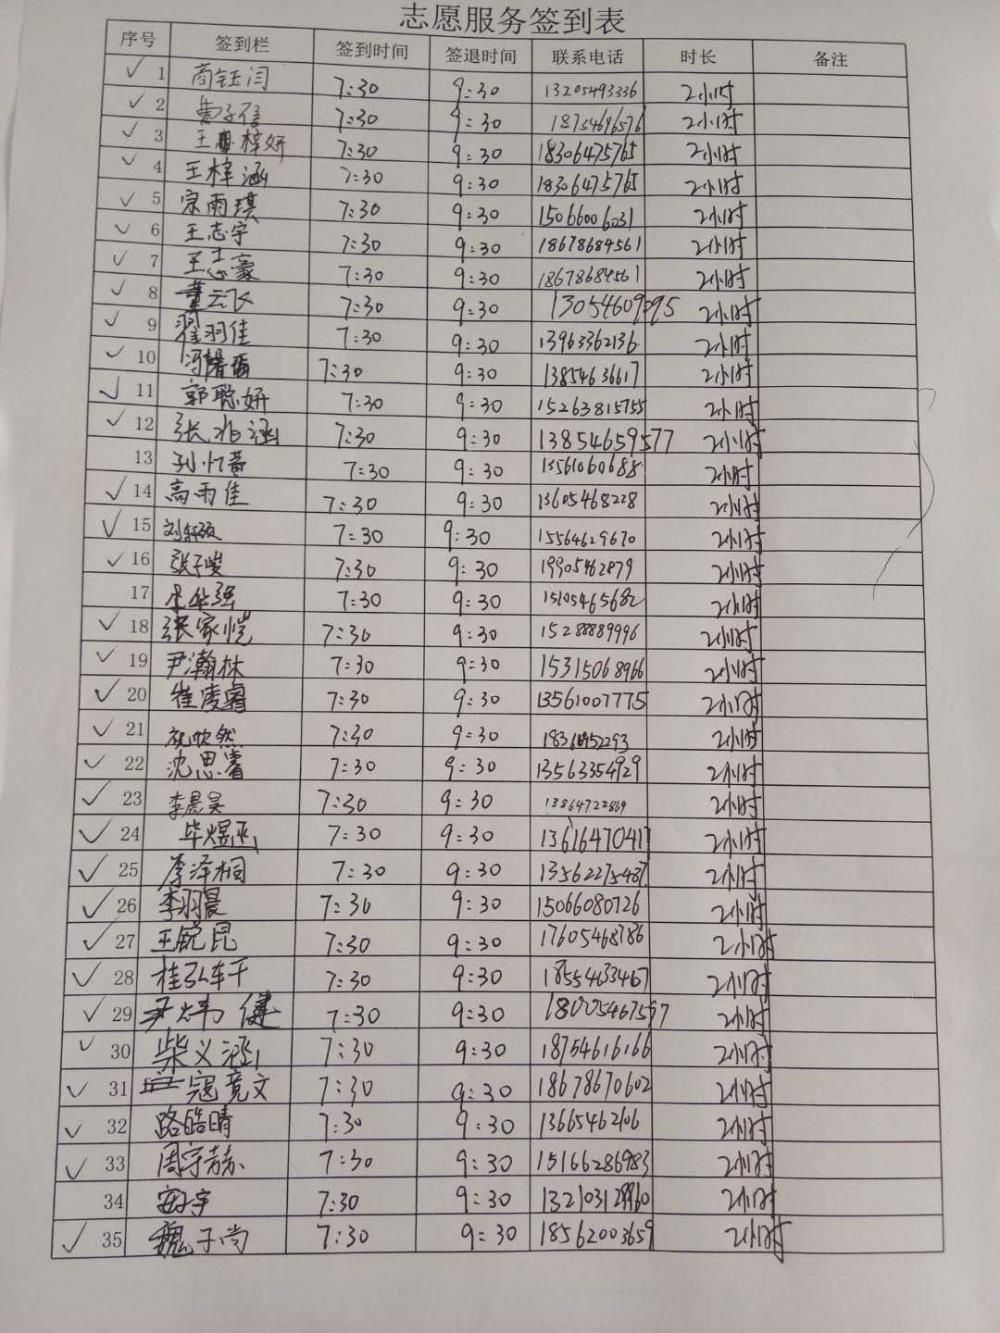 志愿服务签到表
序号 签到栏 签到时间 签退时间 联系电话 时长 备注
✓ 1 商钰闫 7:30 9:30 13205493336 2小时
✓ 2 7:30 9:30 18754696576 2小时
✓ 3 王梓妍 7:30 9:30 18306475765 2小时
✓ 4 王梓涵 7:30 9:30 18306475765 2小时
✓ 5 宗雨琪 7:30 9:30 15066006031 2小时
✓ 6 王志宇 7:30 9:30 18678684561 2小时
✓ 7 王志豪 7:30 9:30 18678684561 2小时
✓ 8 董云飞 7:30 9:30 2小时
✓ 9 翟羽佳 7:30 9:30 13963362136 2小时
✓ 10 7:30 9:30 13854636617 2小时
✓ 11 郭聪妍 7:30 9:30 15263815755 2小时
✓ 12 张兆涵 7:30 9:30 13854659577 2小时
13 7:30 9:30 13561060688 2小时
✓ 14 高雨佳 7:30 9:30 13605468228 2小时
✓ 15 7:30 9:30 15564629670 2小时
✓ 16 张子峻 7:30 9:30 19905462879 2小时
17 7:30 9:30 15105465682 2小时
✓ 18 张家恺 7:30 9:30 15288889996 2小时
✓ 19 尹瀚林 7:30 9:30 15315068966 2小时
✓ 20 崔凌睿 7:30 9:30 13561007775 2小时
✓ 21 祝欣然 7:30 9:30 2小时
✓ 22 沈思睿 7:30 9:30 13563354929 2小时
✓ 23 李晨昊 7:30 9:30 13864722869 2小时
✓ 24 毕煜函 7:30 9:30 13616470417 2小时
✓ 25 李泽桐 7:30 9:30 13562275487 2小时
✓ 26 李羽晨 7:30 9:30 15066080726 2小时
✓ 27 王锐昆 7:30 9:30 17605468786 2小时
✓ 28 桂弘年千 7:30 9:30 18554633467 2小时
✓ 29 尹炜健 7:30 9:30 2小时
✓ 30 柴义涵 7:30 9:30 18754616166 2小时
✓ 31 寇竟文 7:30 9:30 18678670602 2小时
✓ 32 路皓晴 7:30 9:30 13665462106 2小时
✓ 33 周宇赫 7:30 9:30 15166286983 2小时
34 7:30 9:30 132103129960 2小时
✓ 35 魏子尚 7:30 9:30 18562003659 2小时